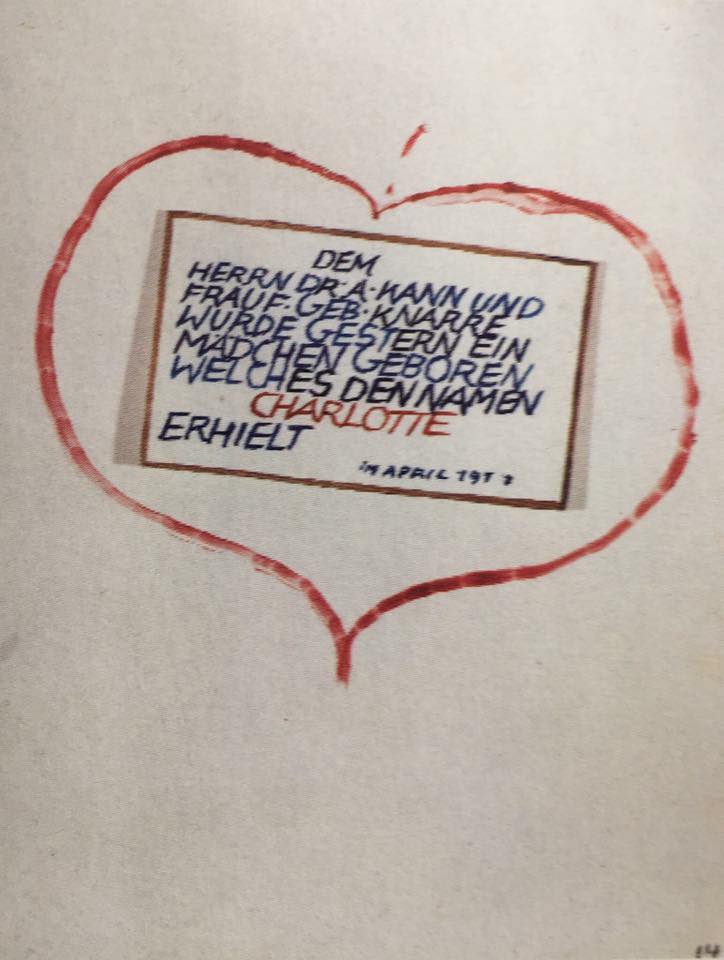 DEM
HERRN DR·A·KANN UND
FRAU F· GEB·KNARRE
WURDE GESTERN EIN
MÄDCHEN GEBOREN
WELCHES DEN NAMEN
CHARLOTTE
ERHIELT
IM APRIL
14